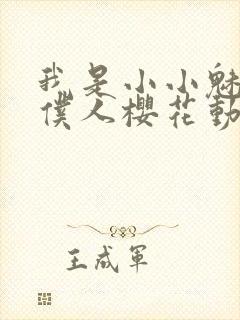 我是小小魅
僕人櫻花動
王成軍